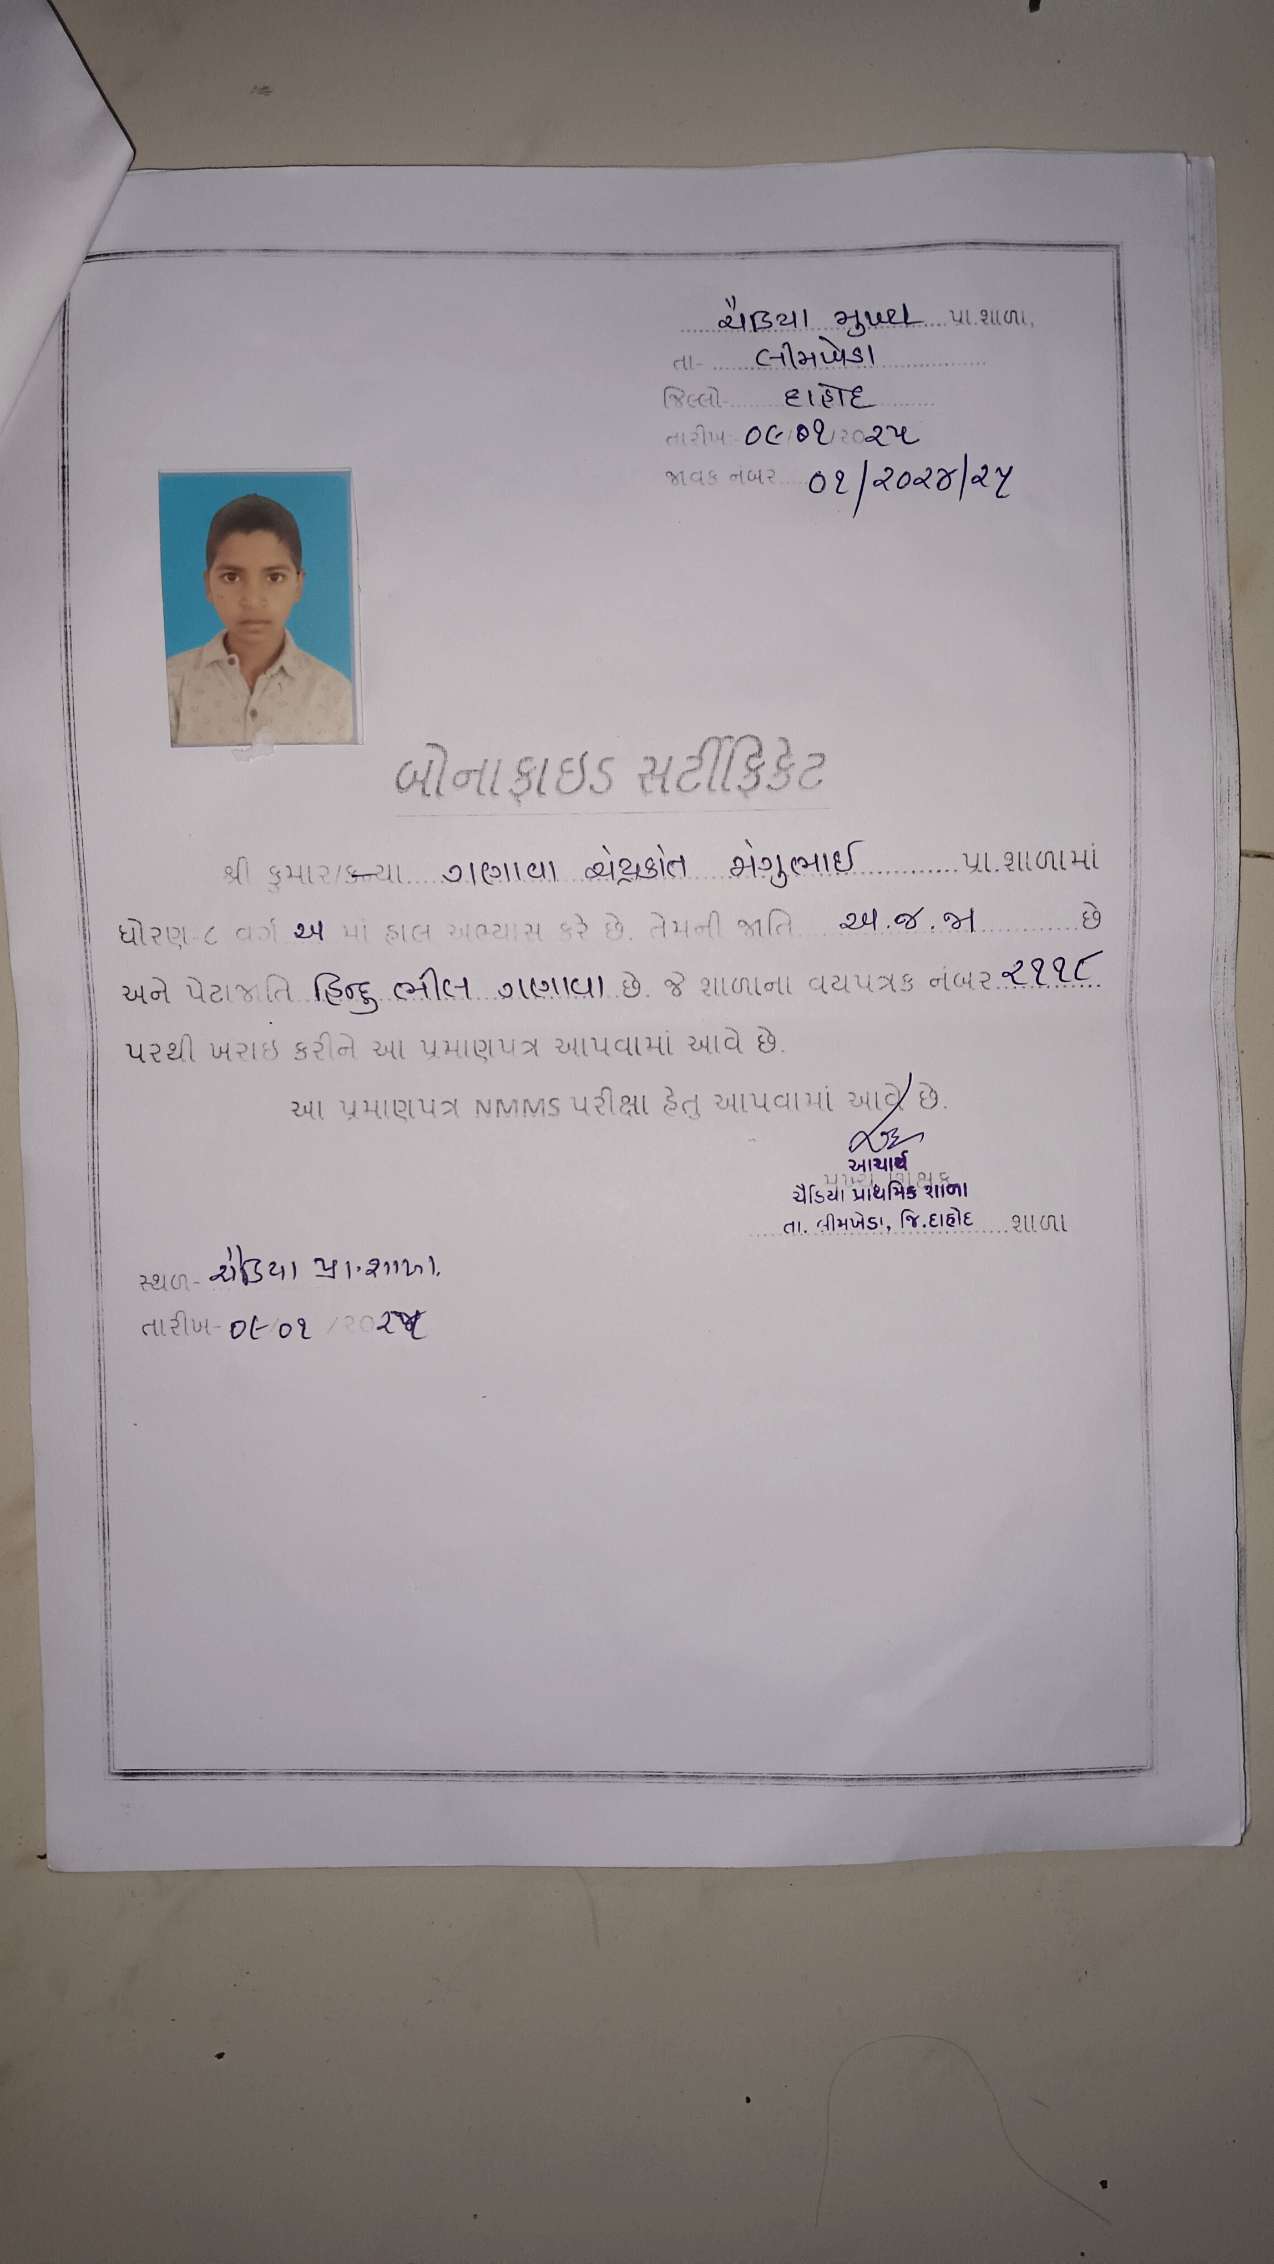 ચૈડિયા મુખ્ય પ્રા.શાળા,
તા- લીમખેડા
જિલ્લો- દાહોદ
તારીખ- ૦૯/૦૧/૨૦૨૫
જાવક નંબર ૦૧/૨૦૨૪/૨૫
બોનાફાઇડ સર્ટીફિકેટ
શ્રી કુમાર/કન્યા ગણાવા ચંદ્રકાંત મંગુભાઈ પ્રા.શાળામાં
ધોરણ-૮ વર્ગ અ માં હાલ અભ્યાસ કરે છે. તેમની જાતિ અ.જ.જા છે
અને પેટાજાતિ હિન્દુ ભીલ ગણાવા છે. જે શાળાના વયપત્રક નંબર ૨૧૧૮
પરથી ખરાઇ કરીને આ પ્રમાણપત્ર આપવામાં આવે છે.
આ પ્રમાણપત્ર NMMS પરીક્ષા હેતુ આપવામાં આવે છે.
આચાર્ય
ચૈડિયા પ્રાથમિક શાળા
તા. લીમખેડા, જિ.દાહોદ શાળા
સ્થળ- ચૈડિયા પ્રા.શાળા.
તારીખ- ૦૯/૦૧/૨૦૨૫